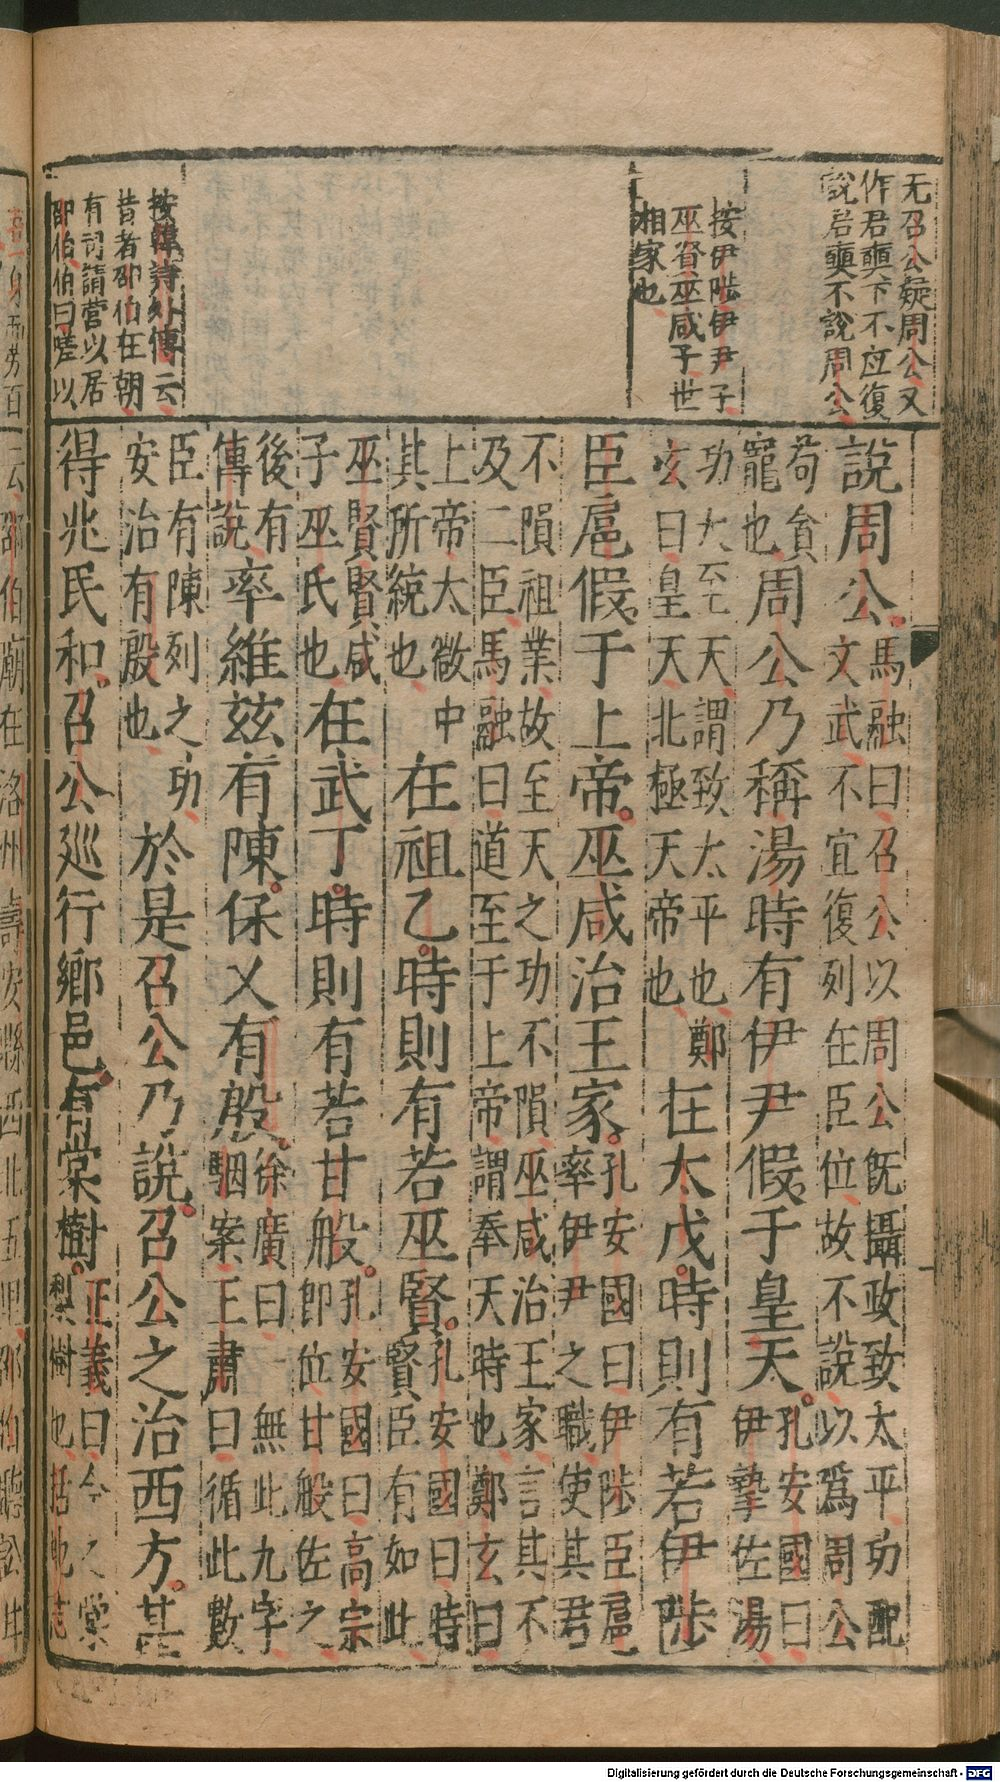 无召公疑周公又
作君奭下不应復
說君奭不說周公
按伊陟伊尹子
巫咎巫咸子世
相家也
按韓詩外傳云
昔者邵伯在朝
有司請營以居
邵伯伯曰嗟以
說周公。馬融曰召公以周公旣攝政致太平功配
文武不宜復列在臣位故不說以爲周公
苟貪
寵也周公乃稱湯時有伊尹假于皇天。孔安國曰
伊摯佐湯
功大至天謂致太平也鄭
玄曰皇天北極天帝也在太戊。時則有若伊陟
臣扈假于上帝。巫咸治王家。孔安國曰伊陟臣扈
率伊尹之職使其君
不隕祖業故至天之功不隕巫咸治王家言其不
及二臣馬融曰道至于上帝謂奉天時也鄭玄曰
上帝太微中
其所統也在祖乙。時則有若巫賢。孔安國曰時
賢臣有如此
巫賢賢咸
子巫氏也在武丁。時則有若甘般。孔安國曰高宗
即位甘般佐之
後有
傳說率維茲有陳。保乂有殷。徐廣曰一無此九字
駰案王肅曰循此數
臣有陳列之功
安治有殷也於是召公乃說。召公之治西方。甚
得兆民和。召公巡行鄉邑。有棠樹。正義曰今之棠
梨樹也括地志
云邵伯廟在洛州壽安縣西北五里邵伯聽訟甘
Digitalisierung gefördert durch die Deutsche Forschungsgemeinschaft - DFG